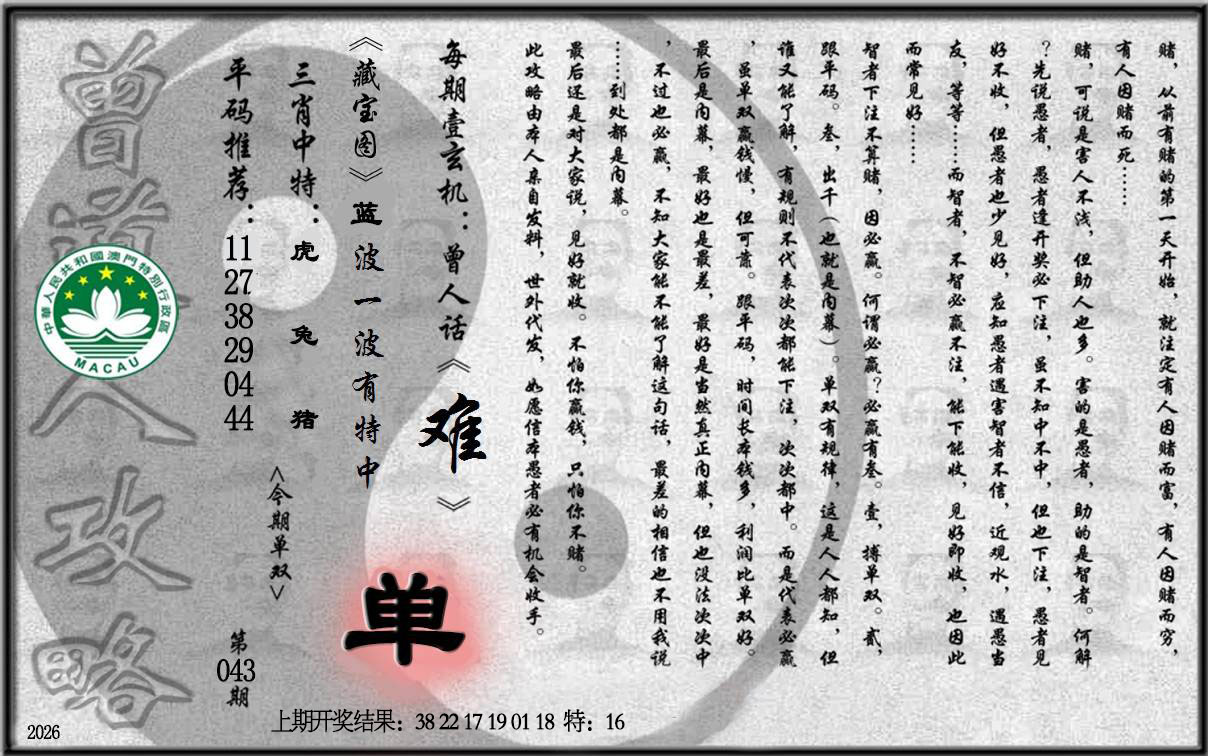 赌，从前有赌的第一天开始，就注定有人因赌而富，有人因赌而穷，
有人因赌而死……
赌，可说是害人不浅，但助人也多。害的是愚者，助的是智者。何解
？先说愚者，愚者逢开奖必下注，虽不知中不中，但也下注，愚者见
好不收，但愚者也少见好，应知愚者遇害智者不信，近观水，遇愚当
友，等等……而智者，不智必赢不注，能下能收，见好即收，也因此
而常见好……
智者下注不算赌，因必赢。何谓必赢？必赢有叁。壹，搏单双。贰，
跟平码。叁，出千（也就是内幕）。单双有规律，这是人人都知，但
谁又能了解，有规则不代表次次都能下注，次次都中。而是代表必赢
，虽单双赢钱慢，但可靠。跟平码，时间长本钱多，利润比单双好。
最后是内幕，最好也是最差，最好是当然真正内幕，但也没法次次中
，不过也必赢，不知大家能不能了解这句话，最差的相信也不用我说
……到处都是内幕。
最后还是对大家说，见好就收。不怕你赢钱，只怕你不赌。
此攻略由本人亲自发料，世外代发，如愿信本愚者必有机会收手。
每期壹玄机：曾人话《难》
《藏宝图》蓝波一波有特中
单
三肖中特：虎 兔 猪
<今期单双>
平码推荐：11 27 38 29 04 44
第043期
曾道人攻略
中華人民共和國澳門特別行政區
MACAU
上期开奖结果：38 22 17 19 01 18 特：16
2026